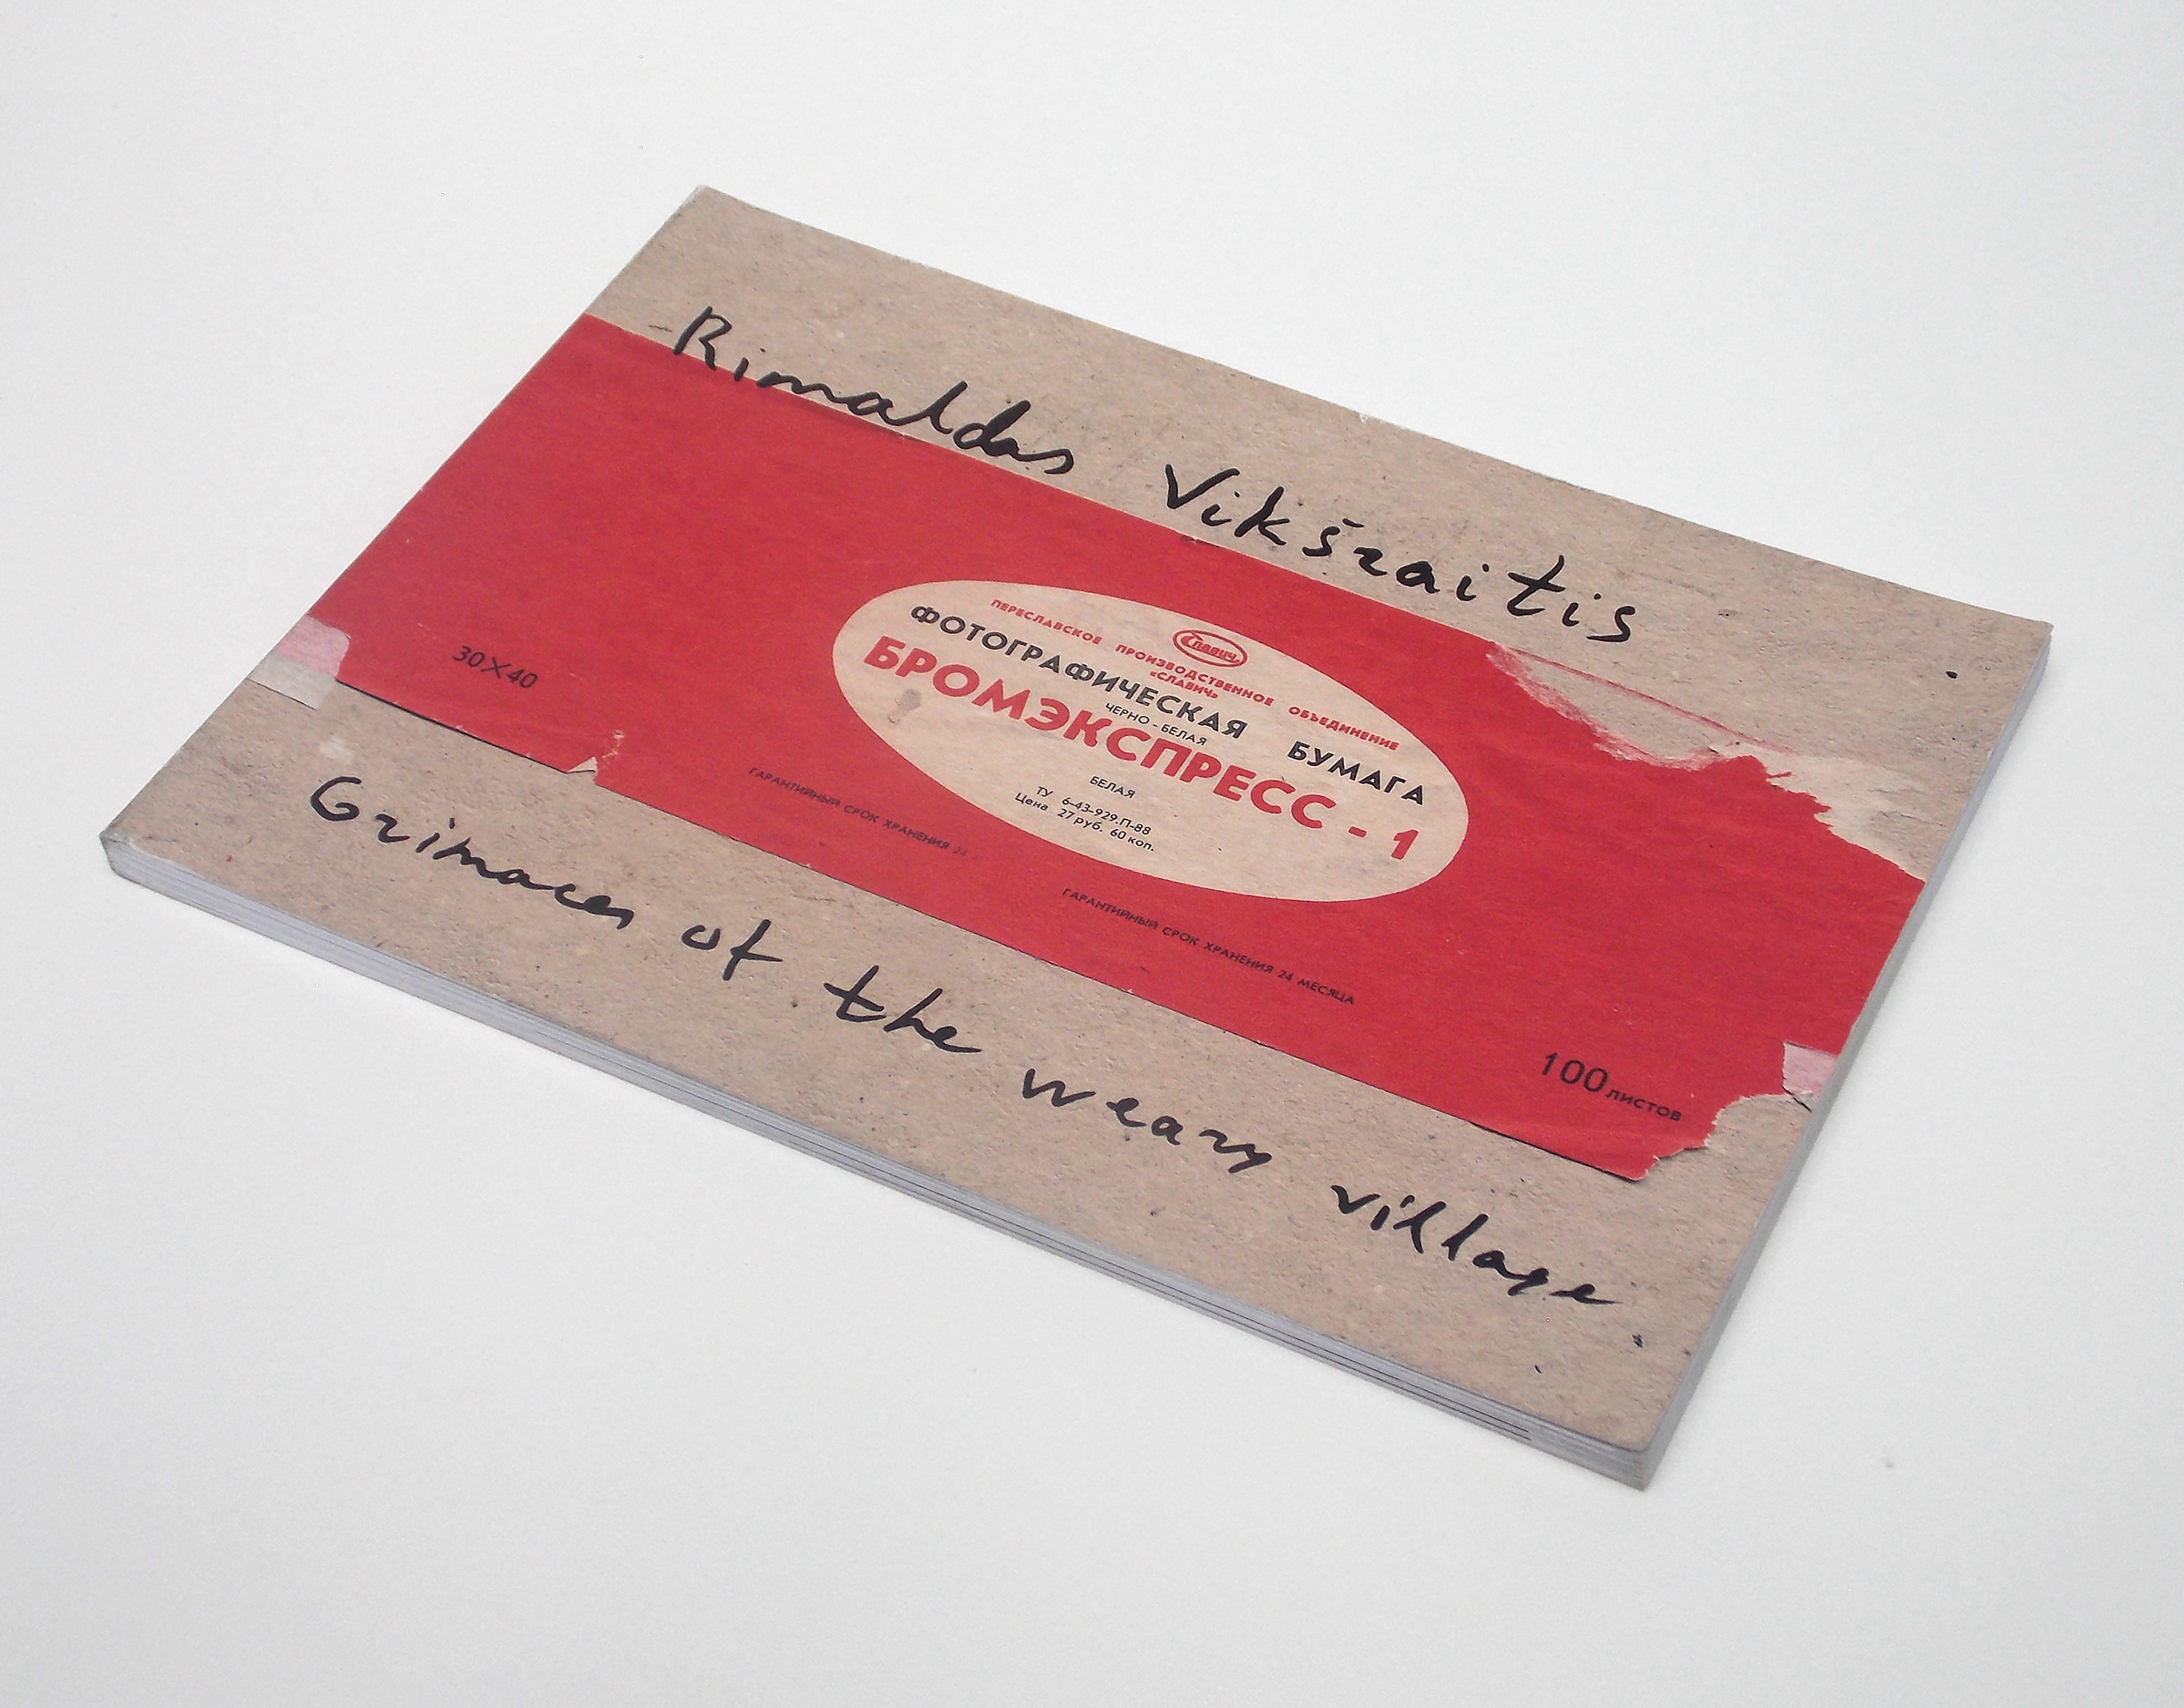 Rimaldas Vikšraitis
Славич
ПЕРЕСЛАВСКОЕ ПРОИЗВОДСТВЕННОЕ ОБЪЕДИНЕНИЕ
«СЛАВИЧ»
ФОТОГРАФИЧЕСКАЯ БУМАГА
ЧЕРНО-БЕЛАЯ
БРОМЭКСПРЕСС - 1
БЕЛАЯ
ТУ 6-43-929.П-88
Цена 27 руб. 60 коп.
30×40
ГАРАНТИЙНЫЙ СРОК ХРАНЕНИЯ 24
ГАРАНТИЙНЫЙ СРОК ХРАНЕНИЯ 24 МЕСЯЦА
100 ЛИСТОВ
Grimaces of the weary village